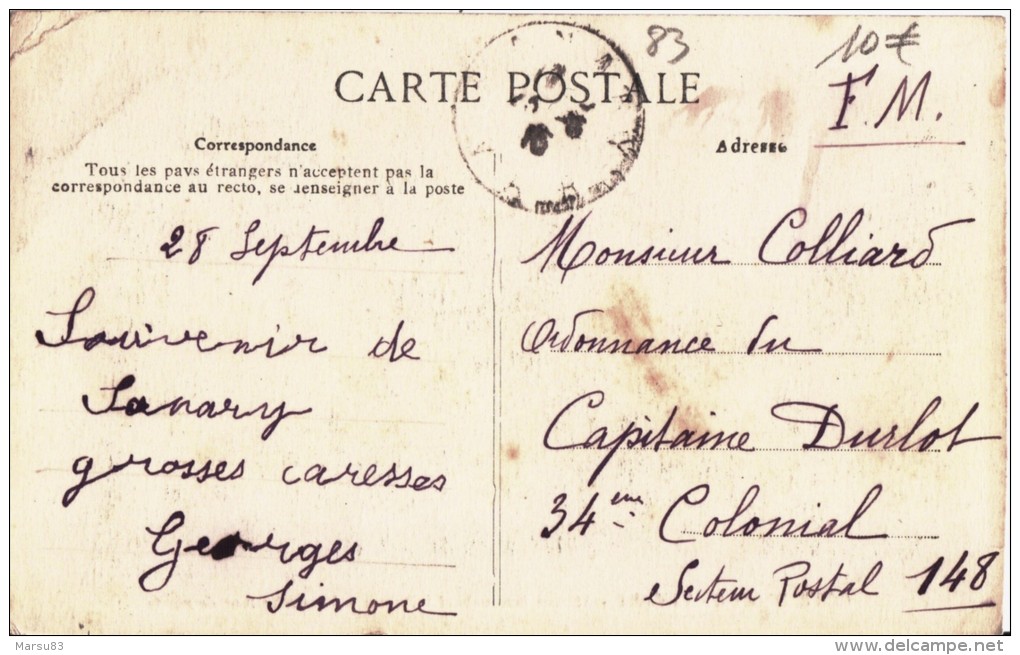 83
10€
CARTE POSTALE
F.M.
Correspondance
Adresse
Tous les pays étrangers n'acceptent pas la
correspondance au recto, se renseigner à la poste
28 Septembre
Souvenir de
Sanary
grosses caresses
Georges
Simone
Monsieur Colliard
Ordonnance du
Capitaine Durlot
34eme Colonial
Secteur Postal 148
Marsu83
www.delcampe.net